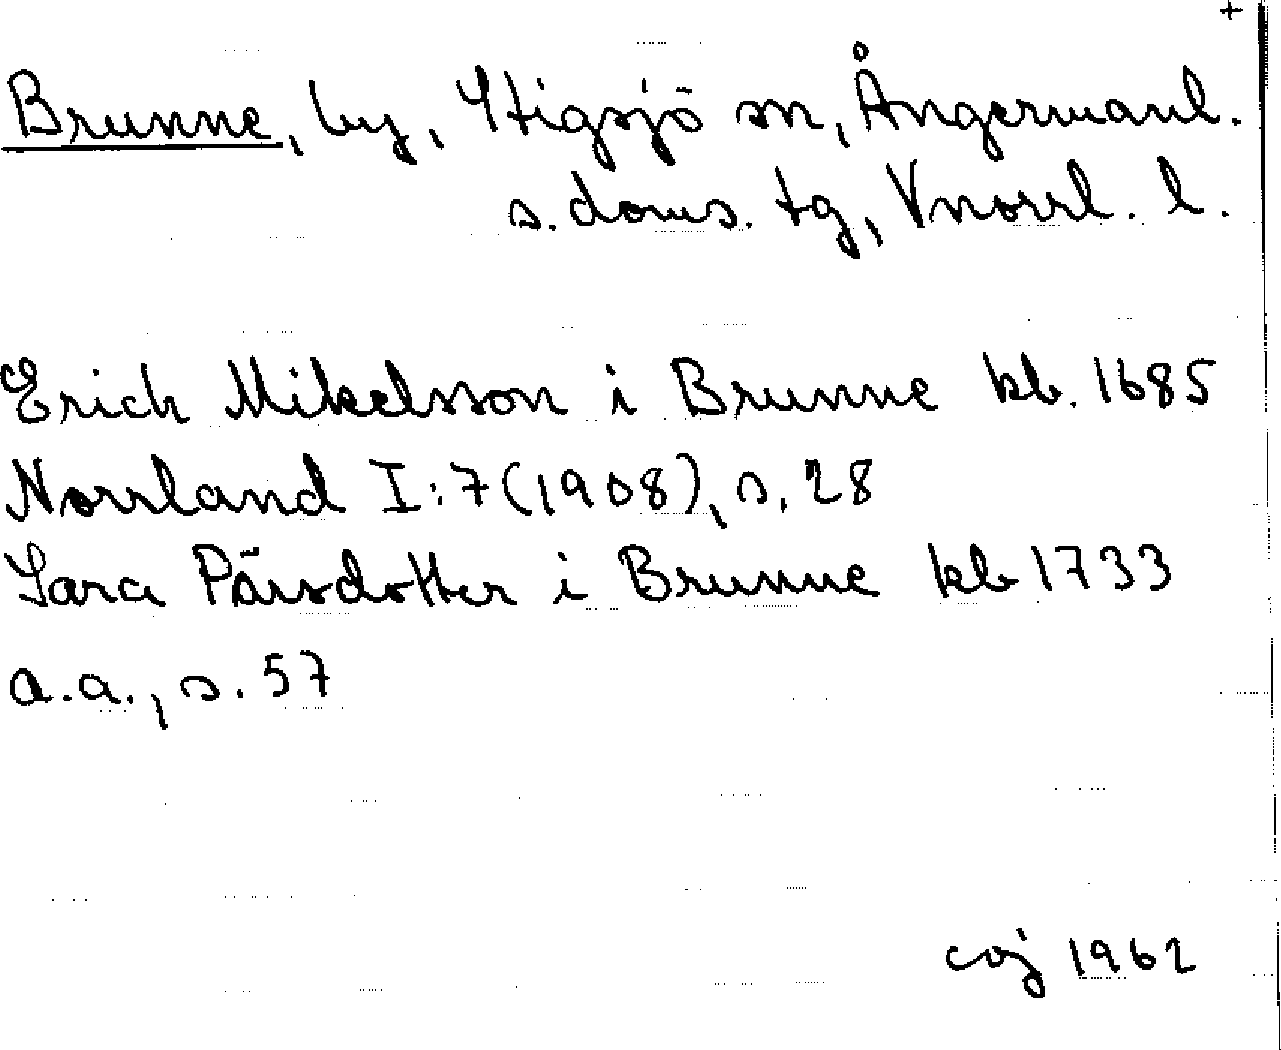 +
Brunne, by, Stigsjö sn, Ångermanl.
s. doms. tg, Vnorrl. l.
Erich Mikelsson i Brunne kb. 1685
Norrland I:7(1908), s. 28
Sara Pärsdotter i Brunne kb 1733
a.a., s. 57
coj 1962